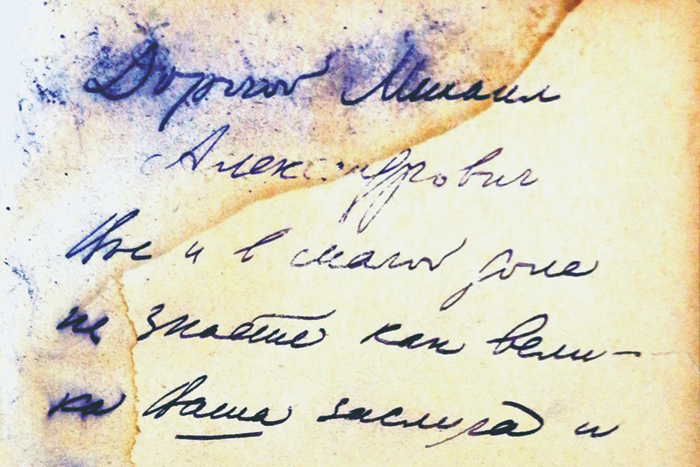 Дорогой Михаил
Александрович
Вы и в малой доле
не знаете как вели-
ка Ваша заслуга и